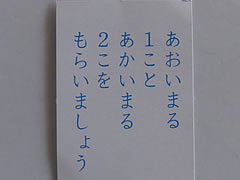 あおいまる
1こと
あかいまる
2こを
もらいましょう